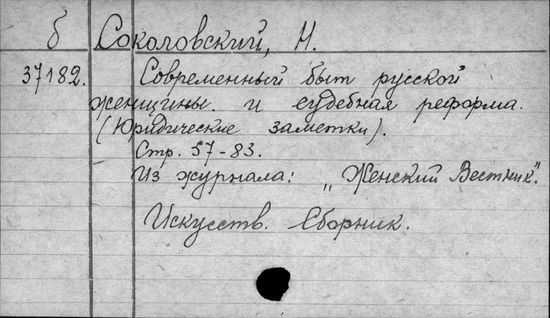 б Соколовский, Н.
37182. Современный быт русской
женщины. и судебная реформа.
(Юридические заметки).
Стр. 57-83.
Из журнала: „Женский Вестник".
Искусств. Сборник.